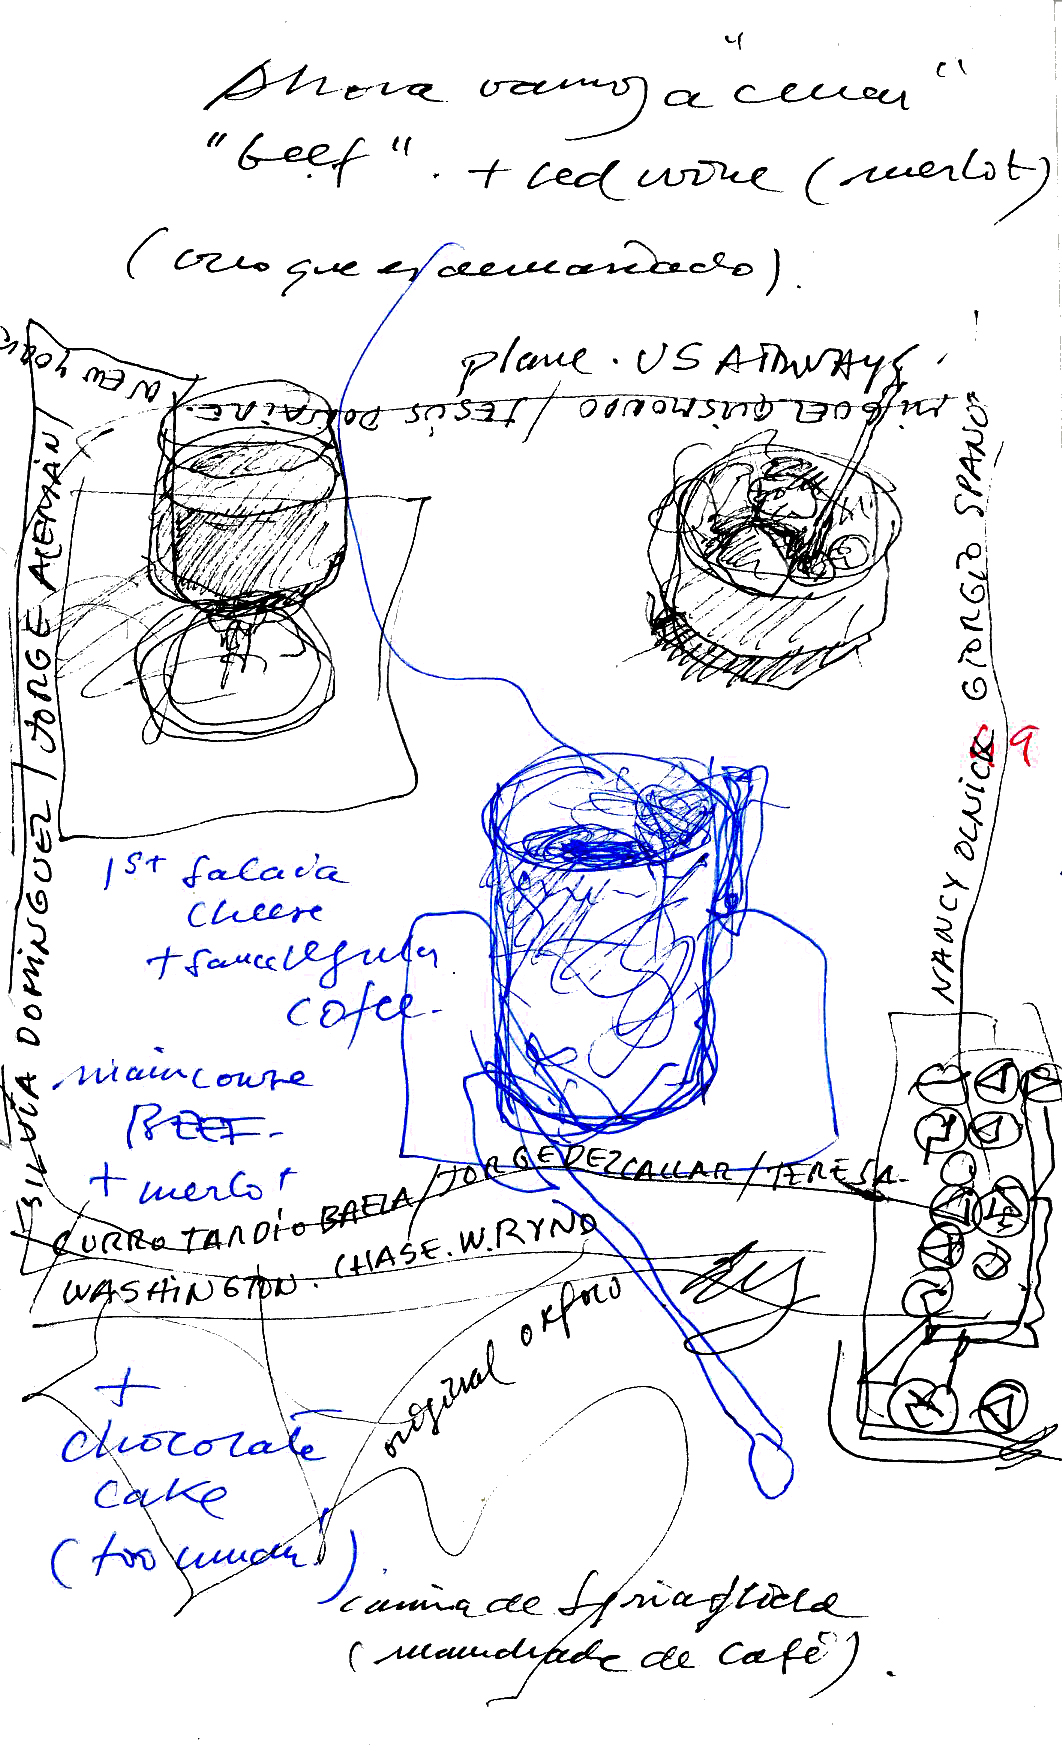 Ahora vamos a "cenar"
"beef". + red wine (merlot)
(creo que es demasiado).
plane. US AIRWAYS.
NEW YORK
MIGUEL QUISMONDO / JESÚS
SILVIA DOMÍNGUEZ / JORGE ALEMÁN /
GIORGIO SPANO
NANCY OLNICK
9
1st salada
cheese
+ sauce regular
cofee.
main course
BEEF.
+ merlot
CURRO TARDÍO BAEZA / JORGE DEZCALLAR / TERESA.
WASHINGTON. CHASE. W. RYND
original oxford
+
chocolate
cake
(too much!).
de
( de café).